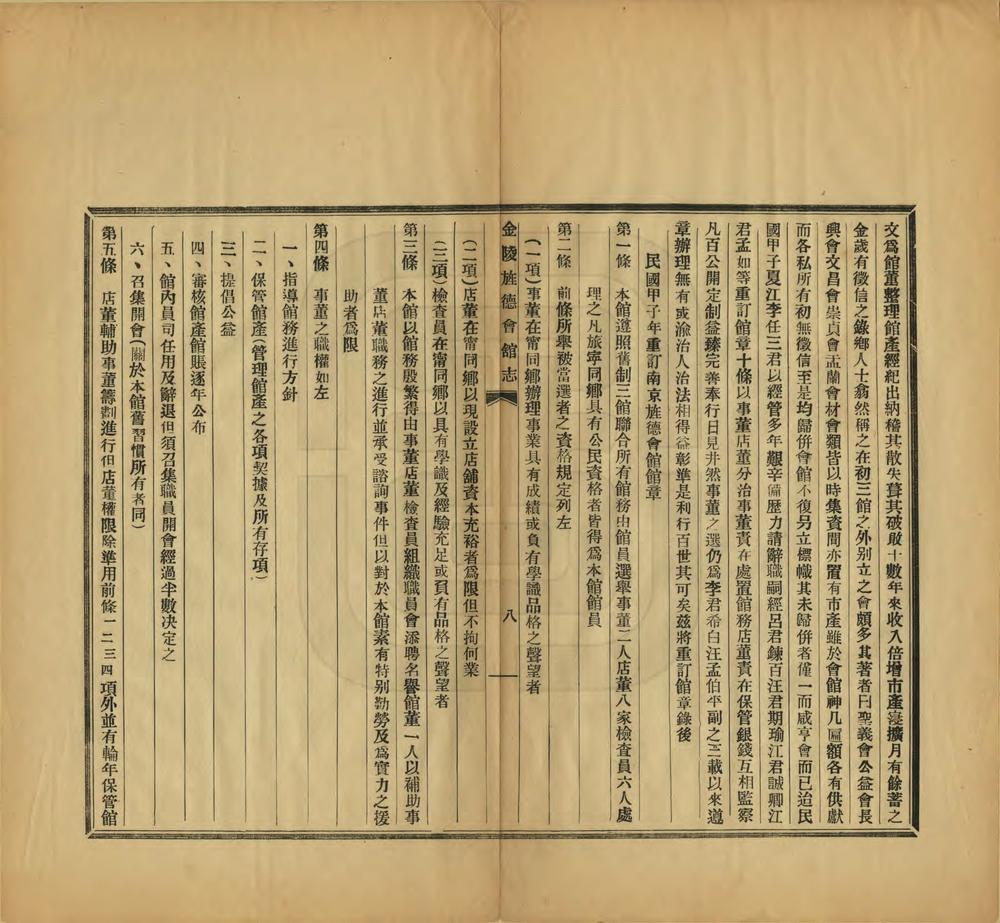 文爲館董整理館產經紀出納稽其散失葺其破敗十數年來收入倍增市產寖擴月有餘蓄之
金歲有徵信之錄鄉人士翕然稱之在初三館之外別立之會頗多其著者曰聖義會公益會長
興會文昌會崇貞會盂蘭會材會類皆以時集資間亦置有市產雖於會館神几匾額各有供獻
而各私所有初無徵信至是均歸併會館不復另立標幟其未歸併者僅一而咸亨會而已迨民
國甲子夏江李任三君以經管多年艱辛備歷力請辭職嗣經呂君鍊百汪君期瑜江君誠卿江
君孟如等重訂館章十條以事董店董分治事董責在處置館務店董責在保管銀錢互相監察
凡百公開定制益臻完善奉行日見井然事董之選仍爲李君希白汪孟伯平副之三載以來遵
章辦理無有或渝治人治法相得益彰準是利行百世其可矣茲將重訂館章錄後
民國甲子年重訂南京旌德會館館章
第一條　本館遵照舊制三館聯合所有館務由館員選舉事董二人店董八家檢查員六人處
理之凡旅寧同鄉具有公民資格者皆得爲本館館員
第二條　前條所舉被當選者之資格規定列左
（一項）事董在甯同鄉辦理事業具有成績或負有學識品格之聲望者
金陵旌德會館志　八
（二項）店董在甯同鄉以現設立店舖資本充裕者爲限但不拘何業
（三項）檢查員在甯同鄉以具有學識及經驗充足或負有品格之聲望者
第三條　本館以館務殷繁得由事董店董檢查員組織職員會添聘名譽館董一人以補助事
董店董職務之進行並承受諮詢事件但以對於本館素有特別勤勞及爲實力之援
助者爲限
第四條　事董之職權如左
一、指導館務進行方針
二、保管館產（管理館產之各項契據及所有存項）
三、提倡公益
四、審核館產館賬逐年公布
五、館內員司任用及辭退但須召集職員開會經過半數決定之
六、召集開會（關於本館舊習慣所有者同）
第五條　店董輔助事董籌劃進行但店董權限除準用前條一二三四項外並有輪年保管館